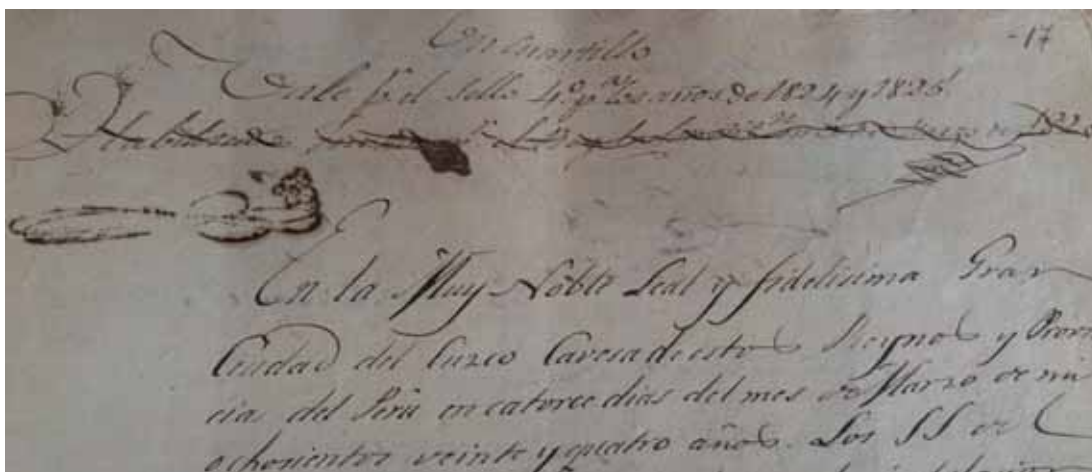 Un cuartillo
-17
Vale pr. el sello 4º pª los años de 1824 y 1825
En la Muy Noble Leal y fidelisima Gran
Ciudad del Cuzco Cavesa de estos Reynos y Provin
cias del Perú en catorce dias del mes de Marzo de mil
ochosientos veinte y quatro años. Los SS de